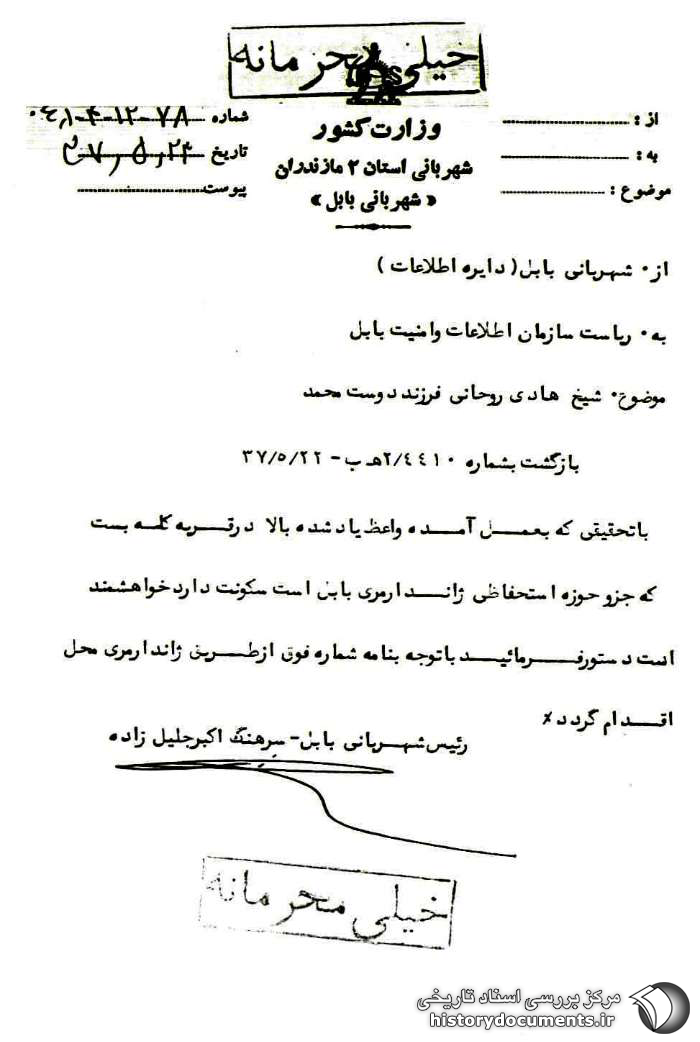 خیلی محرمانه
وزارت کشور
شهربانی استان ۲ مازندران
« شهربانی بابل »
از :
به :
موضوع :
شماره ۷۸-۱۲-۴-
تاریخ ۲۴
پیوست
از ۰ شهربانی بابل ( دایره اطلاعات )
به ۰ ریاست سازمان اطلاعات وامنیت بابل
موضوع ۰ شیخ هادی روحانی فرزند دوست محمد
بازگشت بشماره ۲/۴۴۱۰هـ ب - ۳۷/۵/۲۲
باتحقیقی که بعمـــل آمــده واعظ یاد شده بالا درقــریه کلــه بست
که جزو حوزه استحفاظی ژانــدارمری بابل است سکونت دارد خواهشمند
است دستورفــرمائیــد باتوجه بنامه شماره فوق ازطــریق ژاندارمری محل
اقــدام گردد٪
رئیس شهــربانی بابل - سرهنگ اکبرجلیل زاده
خیلی محرمانه
مرکز بررسی اسناد تاریخی
historydocuments.ir